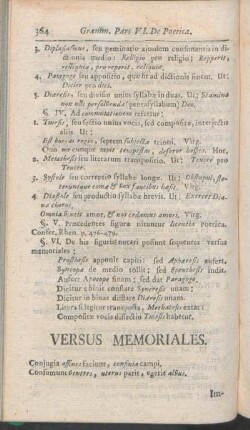 364 Græmm. Pars VI. De Poetica.
3. Diplasiasmus, seu geminatio ejusdem consonantis in
dictionis medio: Relligio pro religio: Repperit,
relliquiæ, pro reperit, reliquiæ.
4. Paragoge seu appositio, quæ fit ad dictionis finem. Ut:
Dicier pro dici.
5. Diæresis, seu divisio unius syllabæ in duas. Ut: Stamina
non ulli persolüenda (pentasyllabum) Deo.
§. IV. Ad commutationem referunt:
1. Tmesis, seu sectio unius vocis, sed compositæ, interjectis
aliis. Ut:
Est hoc in regio, septem subjecta trioni. Virg.
Quo me cunque rapit tempestas, deferor hospes. Hor.
2. Metathesis seu literarum transpositio. Ut: Teucre pro
Teucer.
3. Systole seu correptio syllabæ longæ. Ut: Obstupui, ste-
teruntque comæ & vox faucibus hæsit. Virg.
4. Diastole seu productio syllabæ brevis. Ut: Exercet Dia-
na choros.
Omnia vincit amor, & nos cedamus amori. Virg.
§. V. Præcedentes figuræ nituntur licentia poetica.
Confer. Rhen. p. 476-479.
§. VI. De his figuris notari possunt sequentes versus
memoriales:
Prosthesis apponit capiti: sed Aphæresis aufert.
Syncopa de medio tollit; sed Epenthesis indit.
Aufert Apocope finem; sed dat Paragoge.
Dicitur e binis constare Synæresis unam;
Dicitur in binas dictare Diæresis unam.
Litera si legitur transposta, Metathesis extat:
Compositæ vocis disjectio Tmesis habetur.
VERSUS MEMORIALES.
Conjugia affines faciunt, confinia campi.
Consumunt
Im-